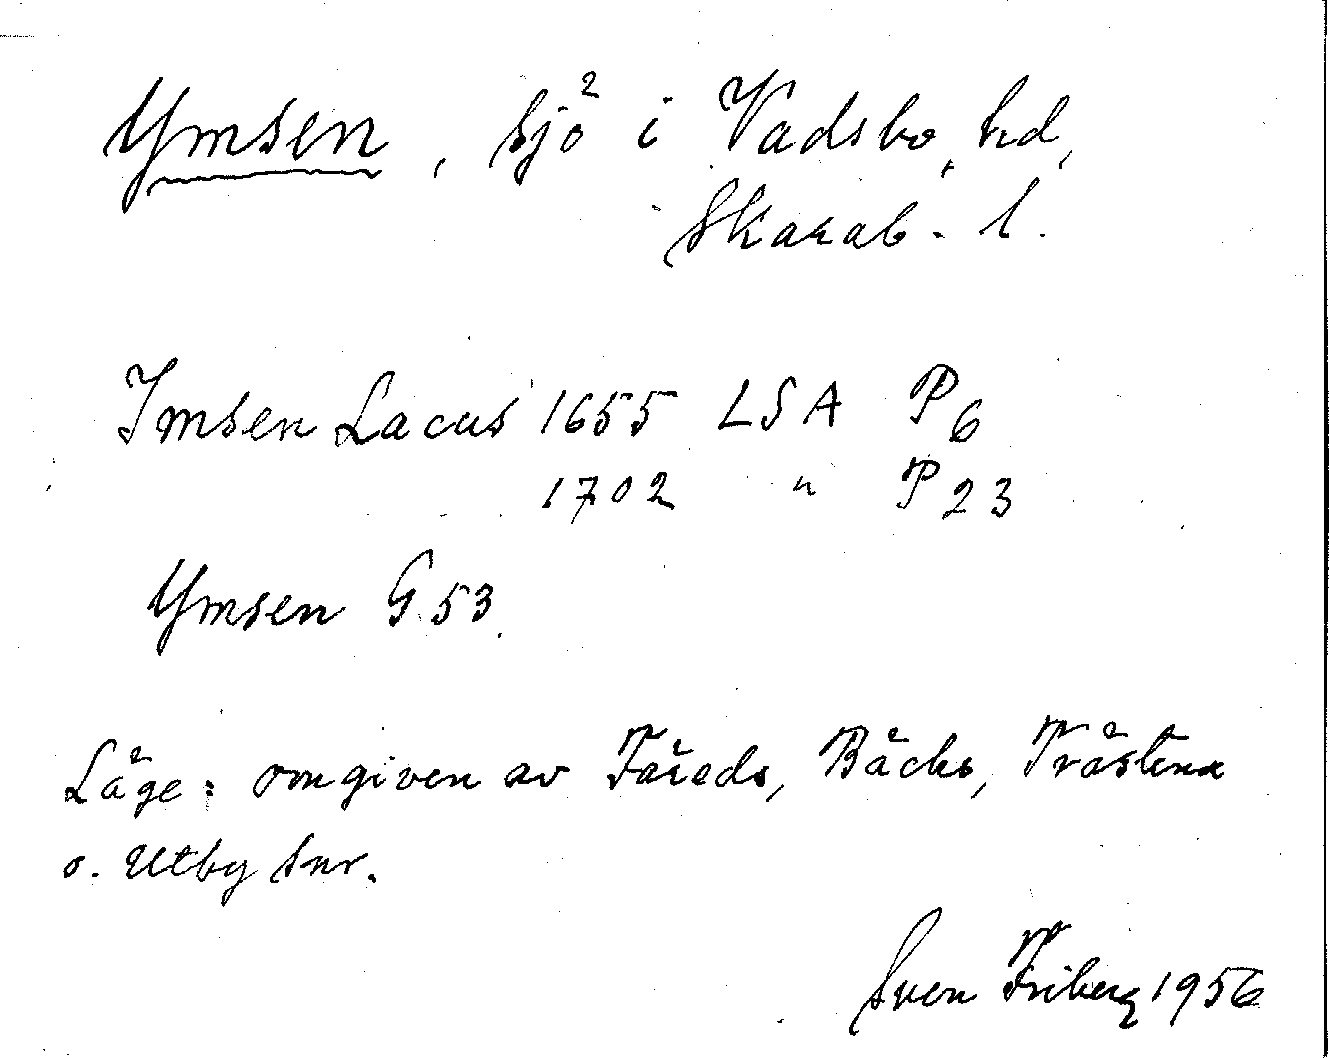 Ymsen, sjö i Vadsbo hd,
Skarab. l.
Imsen Lacus 1655 LSA P6
1702 " P23
Ymsen G 53
Läge: omgiven av Färeds, Bäcks, Trästena
o. Utby snr.
Sven Friberg 1956